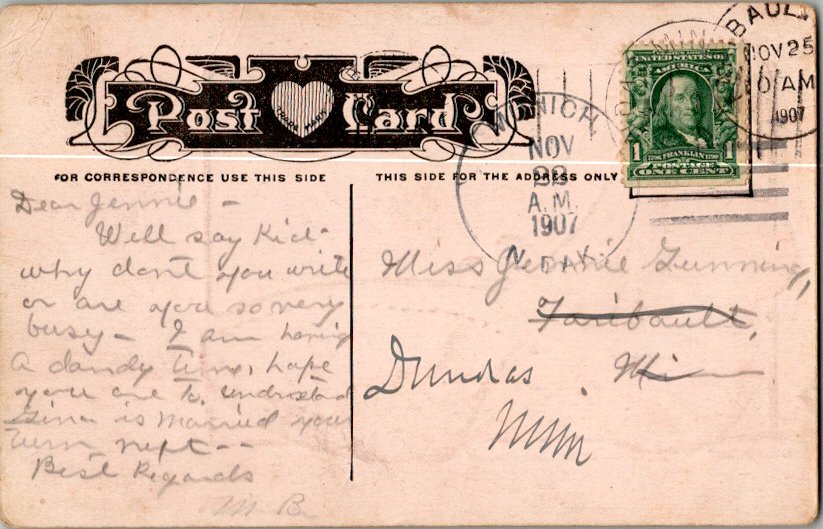 Post Card
TRADE MARK
FOR CORRESPONDENCE USE THIS SIDE
THIS SIDE FOR THE ADDRESS ONLY
UNITED STATES OF
AMERICA
1 1
1706 FRANKLIN 1790
POSTAGE
ONE CENT
BAUL
NOV 25
AM
1907
MUNICH
NOV
22
A.M.
1907
N. DAK.
Dear Jennie -
Well say Kid
why dont you write
or are you so very
busy - I am having
a dandy time, hope
you are to. understand
is married your
turn next --
Best Regards
M B
Miss Jennie Gunning,
Faribault,
Minn
Dundas
Minn